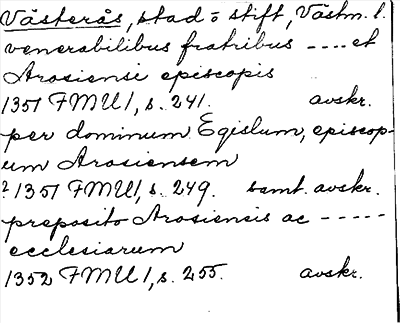 Västerås, stad o stift, Västm. l.
venerabilibus fratribus ---- et
Arosiensi episcopis
1351 FMU 1, s. 241. avskr.
per dominum Egislum, episcop-
um Arosiensem
? 1351 FMU 1, s. 249. samt. avskr.
preposito Arosiensis ac -----
ecclesiarum
1352 FMU 1, s. 255. avskr.